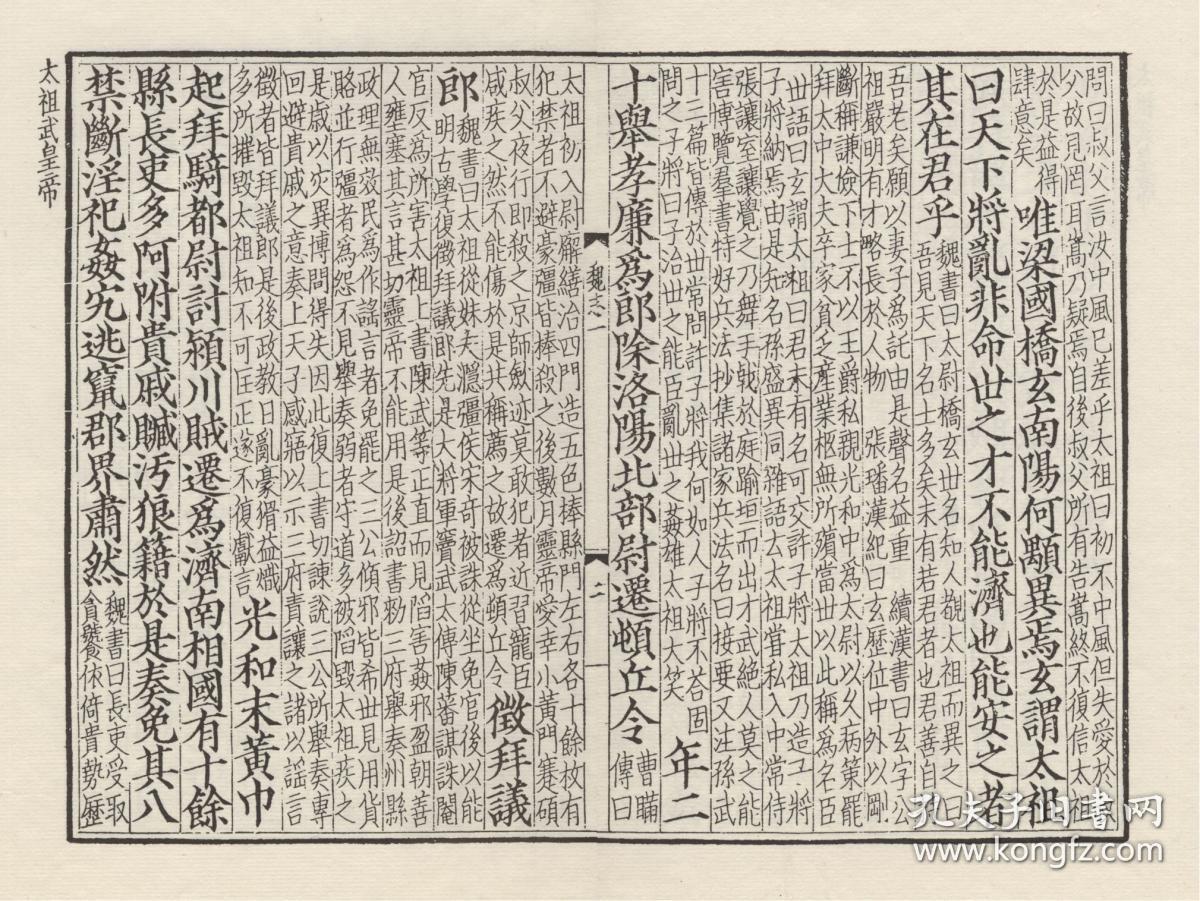 問曰叔父言汝中風已差乎太祖曰初不中風但失愛於
父故見罔耳嵩乃疑焉自後叔父所有告嵩終不復信太祖
於是益得
肆意矣
唯梁國橋玄南陽何顒異焉玄謂太祖
曰天下將亂非命世之才不能濟也能安之者
其在君乎
魏書曰太尉橋玄世名知人覩太祖而異之曰
吾見天下名士多矣未有若君者也君善自
吾老矣願以妻子爲託由是聲名益重 續漢書曰玄字公
祖嚴明有才略長於人物 張璠漢紀曰玄歷位中外以剛
斷稱謙儉下士不以王爵私親光和中爲太尉以久病策罷
拜太中大夫卒家貧乏產業柩無所殯當世以此稱爲名臣
世語曰玄謂太祖曰君未有名可交許子將太祖乃造子將
子將納焉由是知名孫盛異同雜語云太祖嘗私入中常侍
張讓室讓覺之乃舞手戟於庭踰垣而出才武絕人莫之能
害博覽羣書特好兵法抄集諸家兵法名曰接要又注孫武
十三篇皆傳於世常問許子將我何如人子將不荅固
問之子將曰子治世之能臣亂世之姦雄太祖大笑
年二
十舉孝廉爲郎除洛陽北部尉遷頓丘令
曹瞞
傳曰
魏志一
二
太祖初入尉廨繕治四門造五色棒縣門左右各十餘枚有
犯禁者不避豪彊皆棒殺之後數月靈帝愛幸小黃門蹇碩
叔父夜行即殺之京師斂迹莫敢犯者近習寵臣
咸疾之然不能傷於是共稱薦之故遷爲頓丘令
徵拜議
郎
魏書曰太祖從妹夫㶟彊侯宋奇被誅從坐免官後以能
明古學復徵拜議郎先是大將軍竇武太傅陳蕃謀誅閹
官反爲所害太祖上書陳武等正直而見陷害姦邪盈朝善
人壅塞其言甚切靈帝不能用是後詔書勑三府舉奏州縣
政理無效民爲作謠言者免罷之三公傾邪皆希世見用貨
賂並行彊者爲怨不見舉奏弱者守道多被陷毀太祖疾之
是歲以災異博問得失因此復上書切諫說三公所舉奏專
回避貴戚之意奏上天子感寤以示三府責讓之諸以謠言
徵者皆拜議郎是後政教日亂豪猾益熾
多所摧毀太祖知不可匡正遂不復獻言
光和末黃巾
起拜騎都尉討潁川賊遷爲濟南相國有十餘
縣長吏多阿附貴戚贓汚狼籍於是奏免其八
禁斷淫祀姦宄逃竄郡界肅然
魏書曰長吏受取
貪饕依倚貴勢歷
太祖武皇帝
孔夫子旧书网
www.kongfz.com